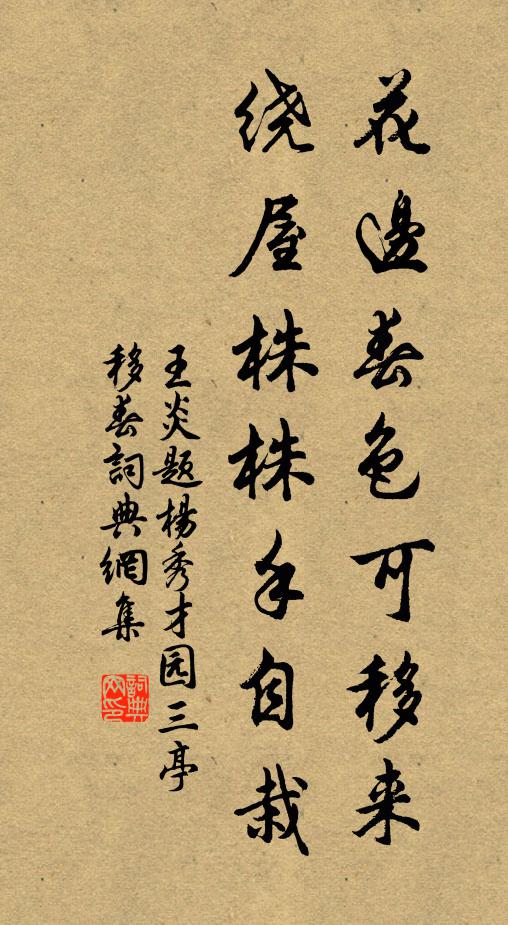 花邊春色可移来
绕屋株株手自栽
王炎题楊秀才园三亭
移春詞典網集
詞典网印